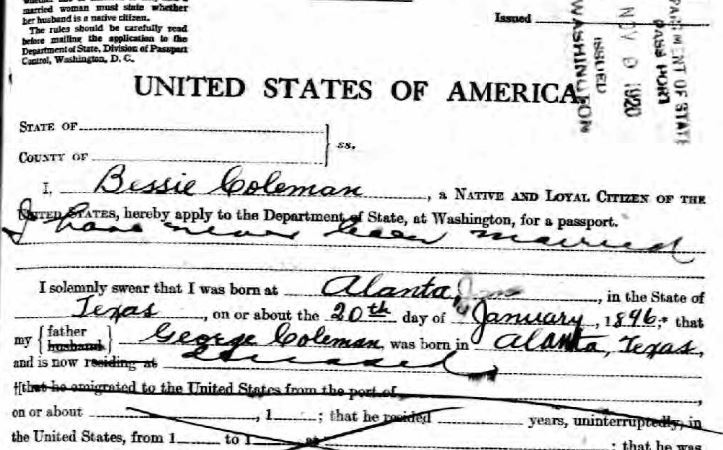 married woman must state whether
her husband is a native citizen.
The rules should be carefully read
before mailing the application to the
Department of State, Division of Passport
Control, Washington, D. C.
Issued
PASSPORT
ISSUED
NOV 9 1920
WASHINGTON
UNITED STATES OF AMERICA.
STATE OF
COUNTY OF
ss.
I, Bessie Coleman, a NATIVE AND LOYAL CITIZEN OF THE
UNITED STATES, hereby apply to the Department of State, at Washington, for a passport.
I have never been married
I solemnly swear that I was born at Alanta, in the State of
Texas, on or about the 20th day of January, 1896; that
my { father
husband } George Coleman, was born in Alanta, Texas,
and is now residing at deceased
[that he emigrated to the United States from the port of
on or about , 1 ; that he resided years, uninterruptedly, in
the United States, from 1 to 1 at ; that he was